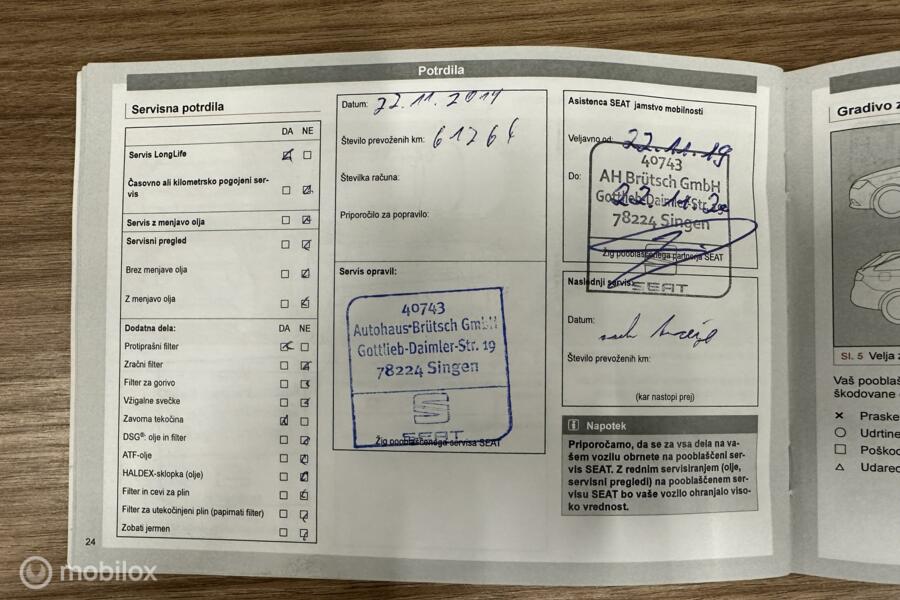 Potrdila
Servisna potrdila
DA NE
Servis LongLife
Časovno ali kilometrsko pogojeni ser-
vis
Servis z menjavo olja
Servisni pregled
Brez menjave olja
Z menjavo olja
Dodatna dela: DA NE
Protiprašni filter
Zračni filter
Filter za gorivo
Vžigalne svečke
Zavorna tekočina
DSG®: olje in filter
ATF-olje
HALDEX-sklopka (olje)
Filter in cevi za plin
Filter za utekočinjeni plin (papirnati filter)
Zobati jermen
24
Datum: 22.11.2019
Število prevoženih km: 61264
Številka računa:
Priporočilo za popravilo:
Servis opravil:
40743
Autohaus-Brütsch GmbH
Gottlieb-Daimler-Str. 19
78224 Singen
SEAT
Žig pooblaščenega servisa SEAT
Asistenca SEAT jamstvo mobilnosti
Veljavno od: 22.11.19
Do:
40743
AH Brütsch GmbH
Gottlieb-Daimler-Str. 19
78224 Singen
Žig pooblaščenega partnerja SEAT
SEAT
Naslednji servis:
Datum:
Število prevoženih km:
(kar nastopi prej)
Napotek
Priporočamo, da se za vsa dela na va-
šem vozilu obrnete na pooblaščeni ser-
vis SEAT. Z rednim servisiranjem (olje,
servisni pregledi) na pooblaščenem ser-
visu SEAT bo vaše vozilo ohranjalo viso-
ko vrednost.
Gradivo z
Sl. 5 Velja z
Vaš pooblaš
škodovane
Praske
Udrtine
Poškod
Udarec
mobilox